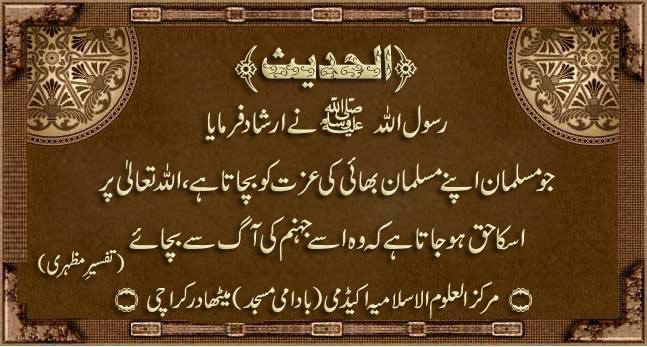 ﴿الحدیث﴾
رسول اللہ ﷺ نے ارشاد فرمایا
جو مسلمان اپنے مسلمان بھائی کی عزت کو بچاتا ہے، اللہ تعالیٰ پر
اسکا حق ہو جاتا ہے کہ وہ اسے جہنم کی آگ سے بچائے
(تفسیر مظہری)
مرکز العلوم الاسلامیہ اکیڈمی (بادامی مسجد) میٹھادر کراچی